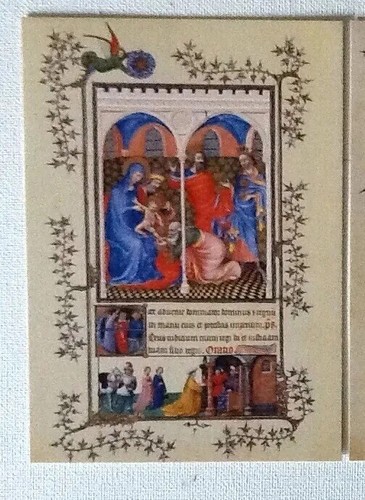 cce aduenit dominator dominus & regnū
in manu eius et potestas imperium. ps.
Deus iudicium tuum regi da et iusticiam
tuam filio regis. Oratio.